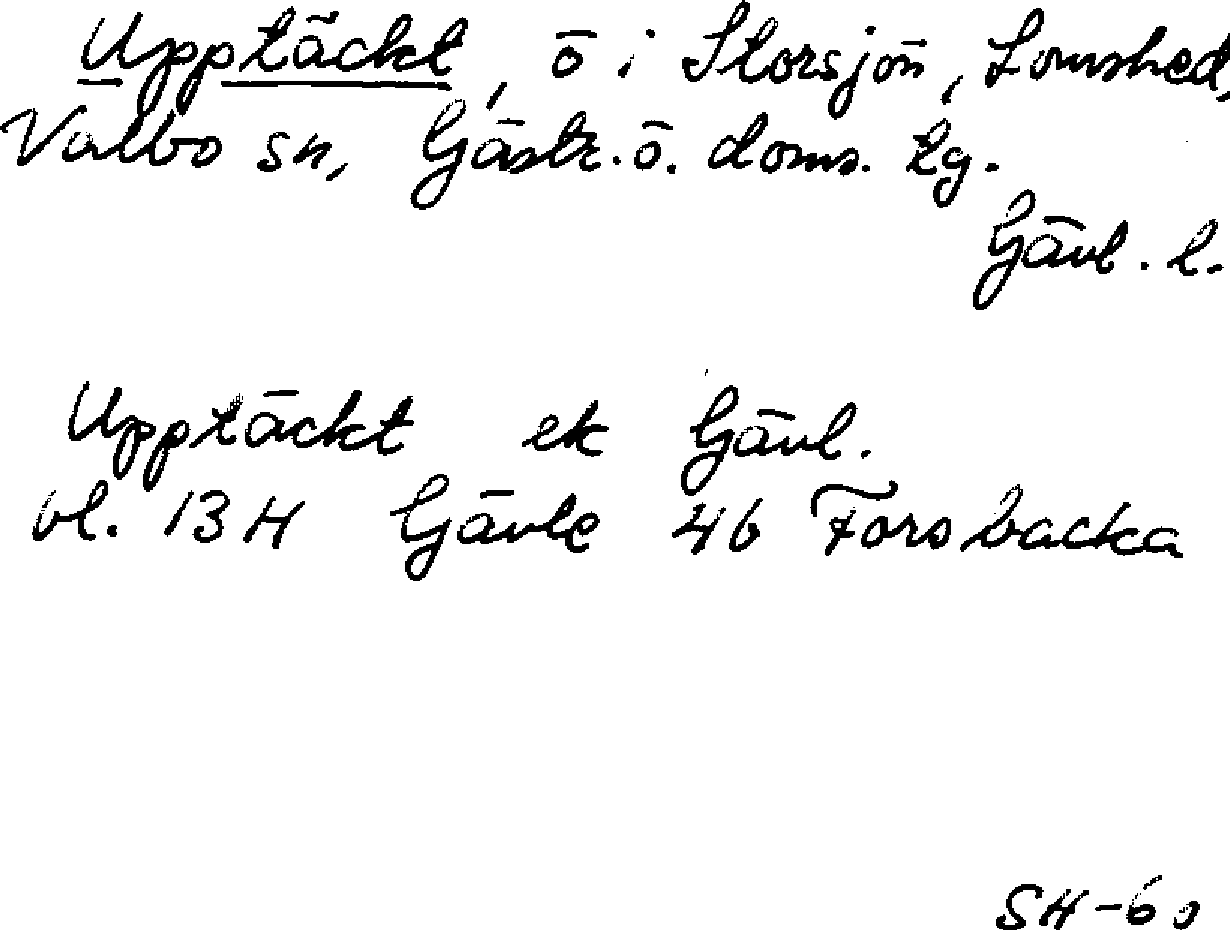 Upptäckt, ö i Storsjön, Lomshed,
Valbo sn, Gästr. ö. doms. tg.
Gävl. l.
Upptäckt ek Gävl.
bl. 13 H Gävle 4b Forsbacka
SH-60